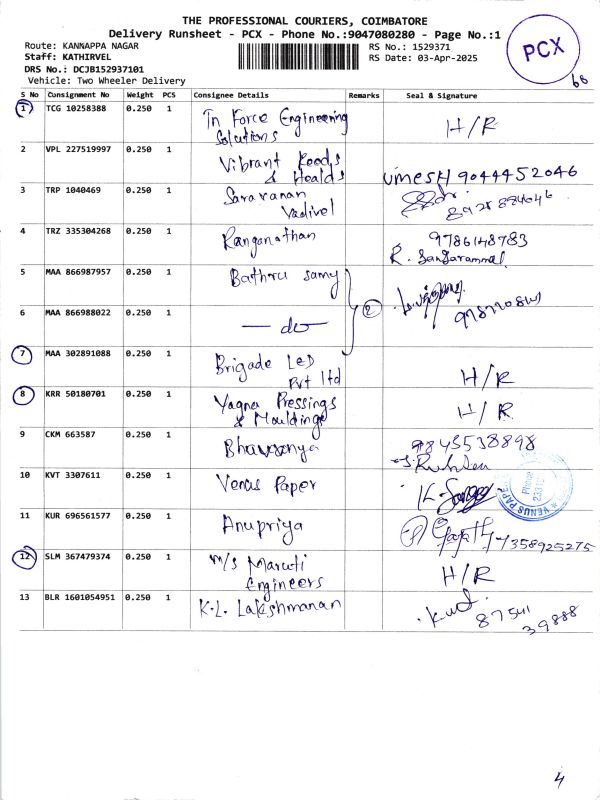 THE PROFESSIONAL COURIERS, COIMBATORE
Delivery Runsheet - PCX - Phone No.:9047080280 - Page No.:1
Route: KANNAPPA NAGAR
Staff: KATHIRVEL
DRS No.: DCJB152937101
Vehicle: Two Wheeler Delivery
RS No.: 1529371
RS Date: 03-Apr-2025
PCX
68
S No Consignment No Weight PCS Consignee Details Remarks Seal & Signature
1 TCG 10258388 0.250 1 In Force Engineering H/R
Solutions
2 VPL 227519997 0.250 1 Vibrant Foods UMESH 9044452046
& Healds
3 TRP 1040469 0.250 1 Saravanan
Vadivel
4 TRZ 335304268 0.250 1 Ranganathan 9786148783
R. Sankarammal
5 MAA 866987957 0.250 1 Bathru samy
2
6 MAA 866988022 0.250 1 — do —
7 MAA 302891088 0.250 1 Brigade LED H/R
Pvt ltd
8 KRR 50180701 0.250 1 Yagna Pressings H/R
& Mouldings
9 CKM 663587 0.250 1 9843538898
10 KVT 3307611 0.250 1 Venus Paper
VENUS PAPE
Phone
11 KUR 696561577 0.250 1 Anupriya 7358925275
12 SLM 367479374 0.250 1 M/s Maruti H/R
Engineers
13 BLR 1601054951 0.250 1 K.L. Lakshmanan 87541
39888
4